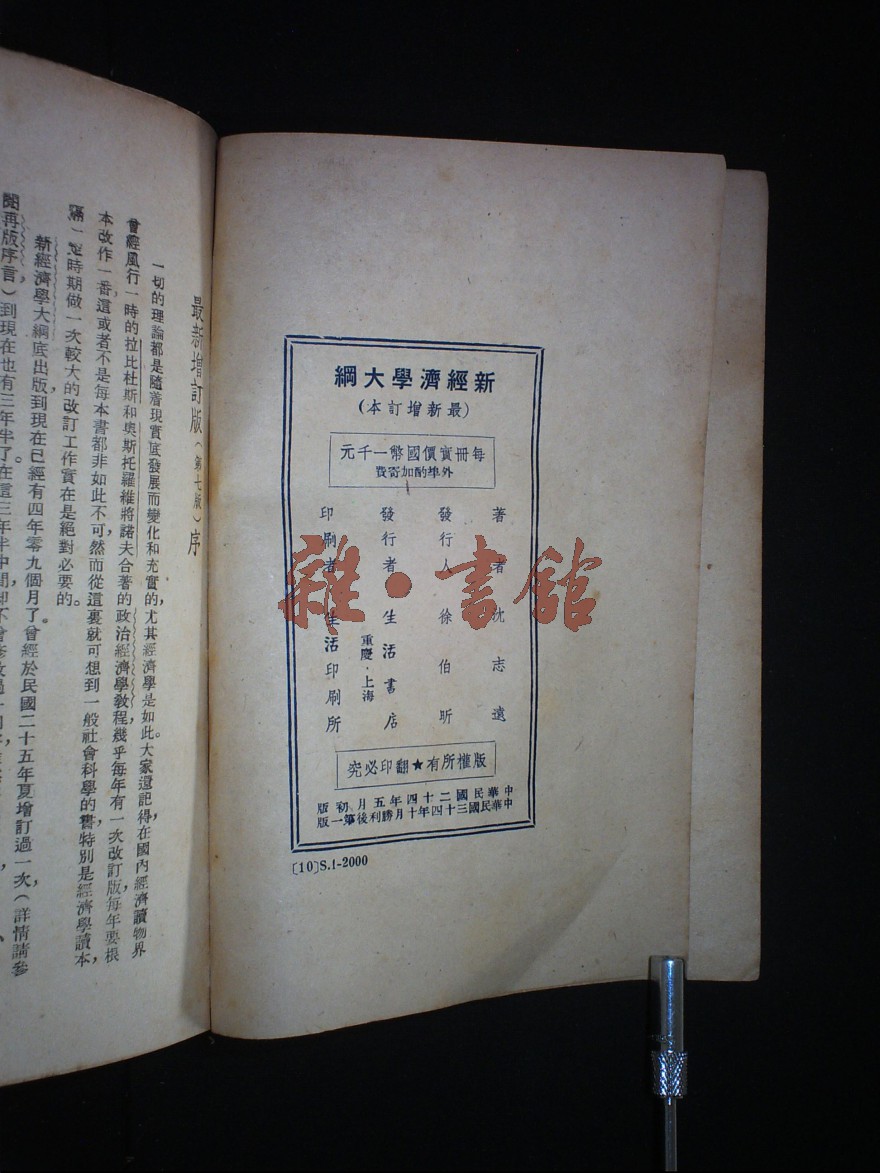 新經濟學大綱
（最新增訂本）
每冊實價國幣一千元
外埠酌加寄費
著者 沈志遠
發行人 徐伯昕
發行者 生活書店
重慶·上海
印刷者 生活印刷所
版權所有★翻印必究
中華民國二十四年五月初版
中華民國三十四年十月勝利後第一版
〔10〕S.1-2000
雜·書館
最新增訂版（第七版）序
一切的理論都是隨着現實底發展而變化和充實的，尤其經濟學是如此。大家還記得在國內經濟讀物界
曾經風行一時的拉比杜斯和奧斯托羅維將諾夫合著的政治經濟學教程，幾乎每年有一次改訂版，每年要根
本改作一番，這或者不是每本書都非如此不可，然而從這裏就可想到一般社會科學的書，特別是經濟學讀本，
隔一定時期做一次較大的改訂工作實在是絕對必要的。
新經濟學大綱底出版到現在已經有四年零九個月了。曾經於民國二十五年夏增訂過一次（詳情請參
閱再版序言），到現在也有三年半了，在這三年半中間